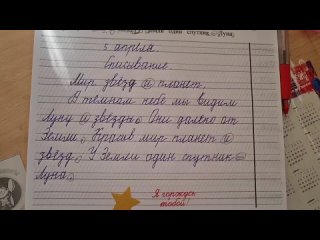 один спутник – Луна.
5 апреля.
Списывание.
Мир звёзд и планет.
В темнам небе мы видим
Луну и звёзды. Они далеко от
Земли. Красив мир планет и
звёзд. У Земли один спутник –
Луна.
Я горжусь
тобой!